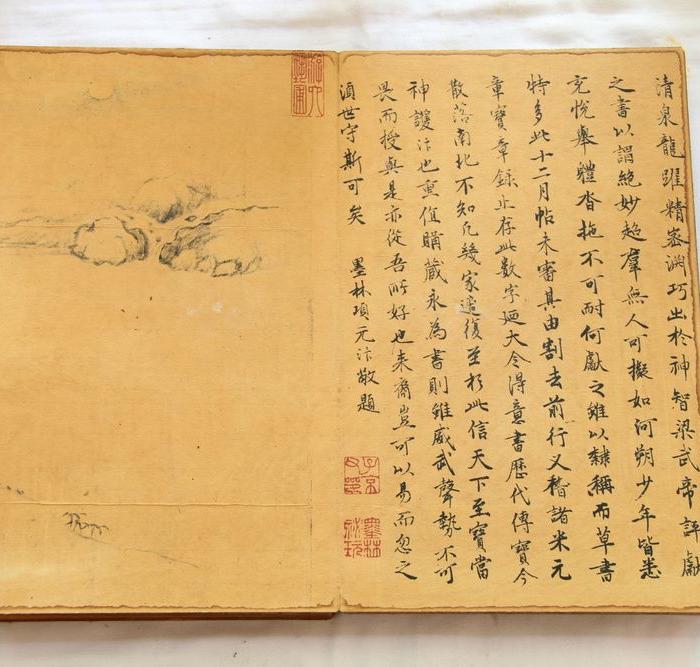 清泉龍躍精密淵巧出於神智梁武帝評獻
之書以謂絕妙超羣無人可擬如河朔少年皆悉
充悅舉體沓拖不可耐何獻之雖以隸稱而草書
特多此十二月帖未審其由割去前行又稽諸米元
章寶章錄止存此數字廼大令得意書歷代傳寶今
散落南北不知凡幾家遂復至於此信天下至寶當
神護汴也重值購藏永為書則雖威武聲勢不可
畏而授與是亦從吾所好也来裔豈可以易而忽之
湏世守斯可矣 墨林項元汴敬題
子京父印
墨林祕玩